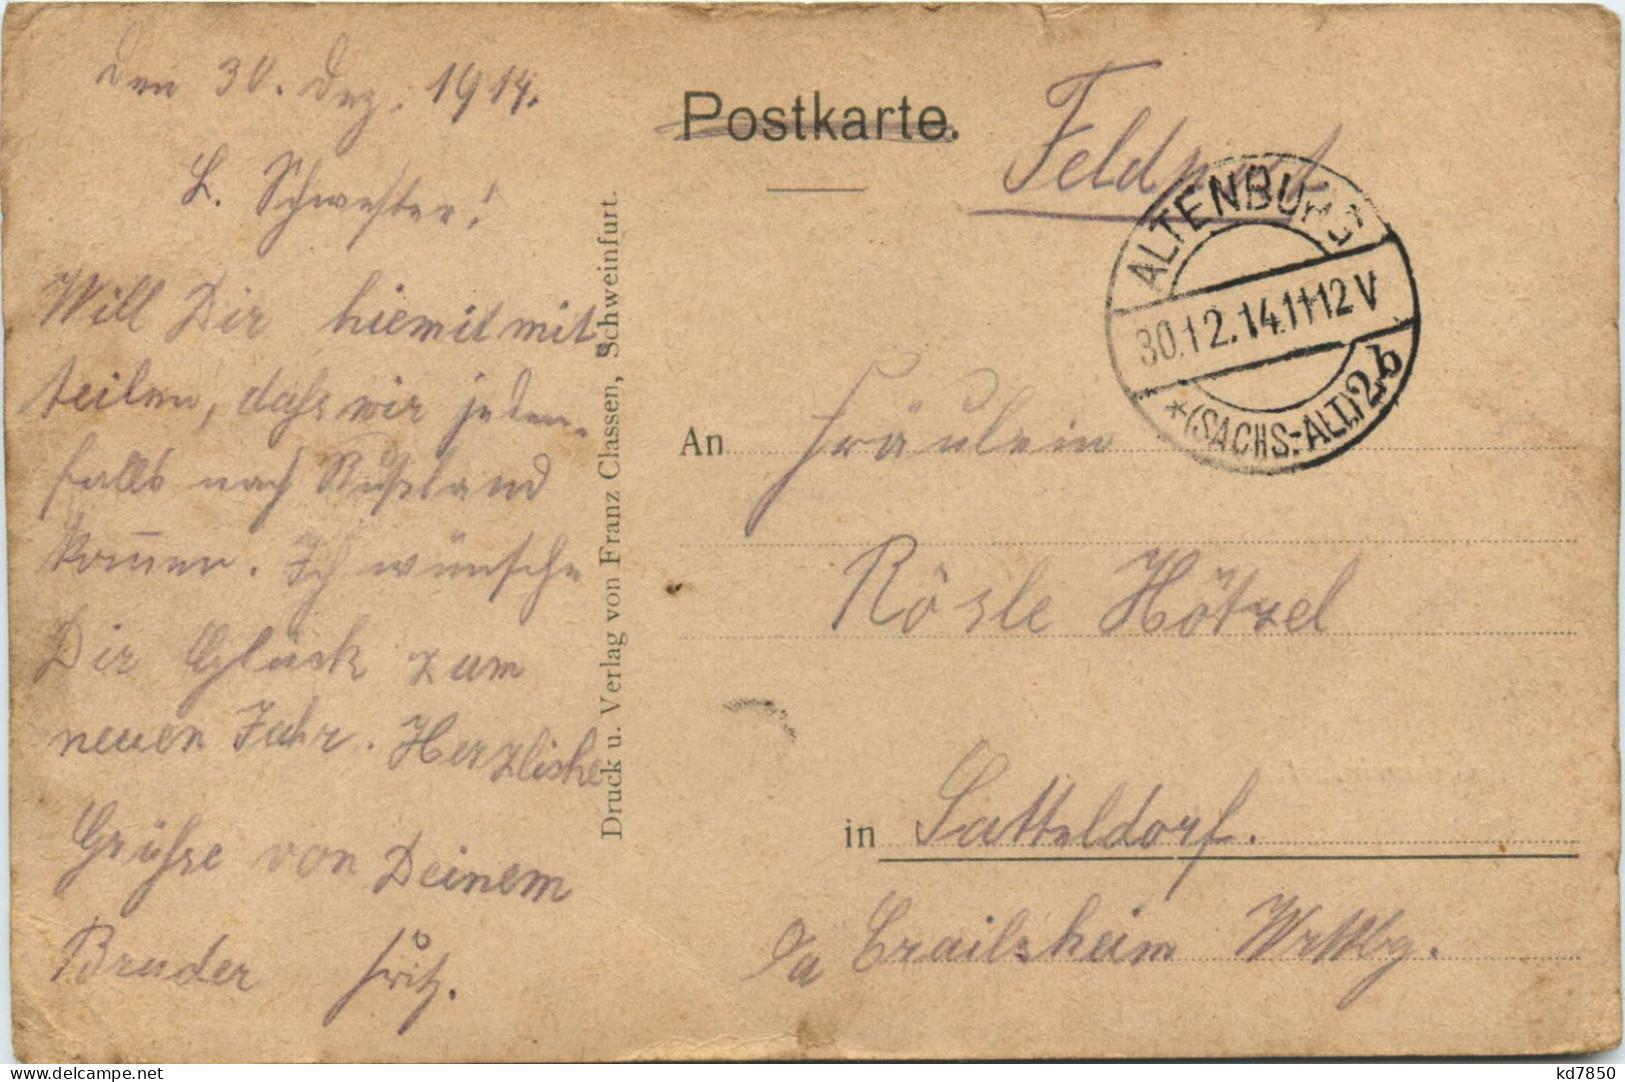 Den 30. Dez. 1914.
L. Schwester!
Will Dir hiemit mit-
teilen, dass wir jeden-
falls nach Rußland
kom̅en. Ich wünsche
Dir Glück zum
neuen Jahr. Herzliche
Grüsse von Deinem
Bruder Fritz.
Druck u. Verlag von Franz Classen, Schweinfurt.
Postkarte.
Feldpost
ALTENBURG
30.12.14.11-12V
*(SACHS.-ALT.)2b
An Fräulein
Rösle Hötzel
in Satteldorf.
o/a Crailsheim Wrttbg.
kd7850